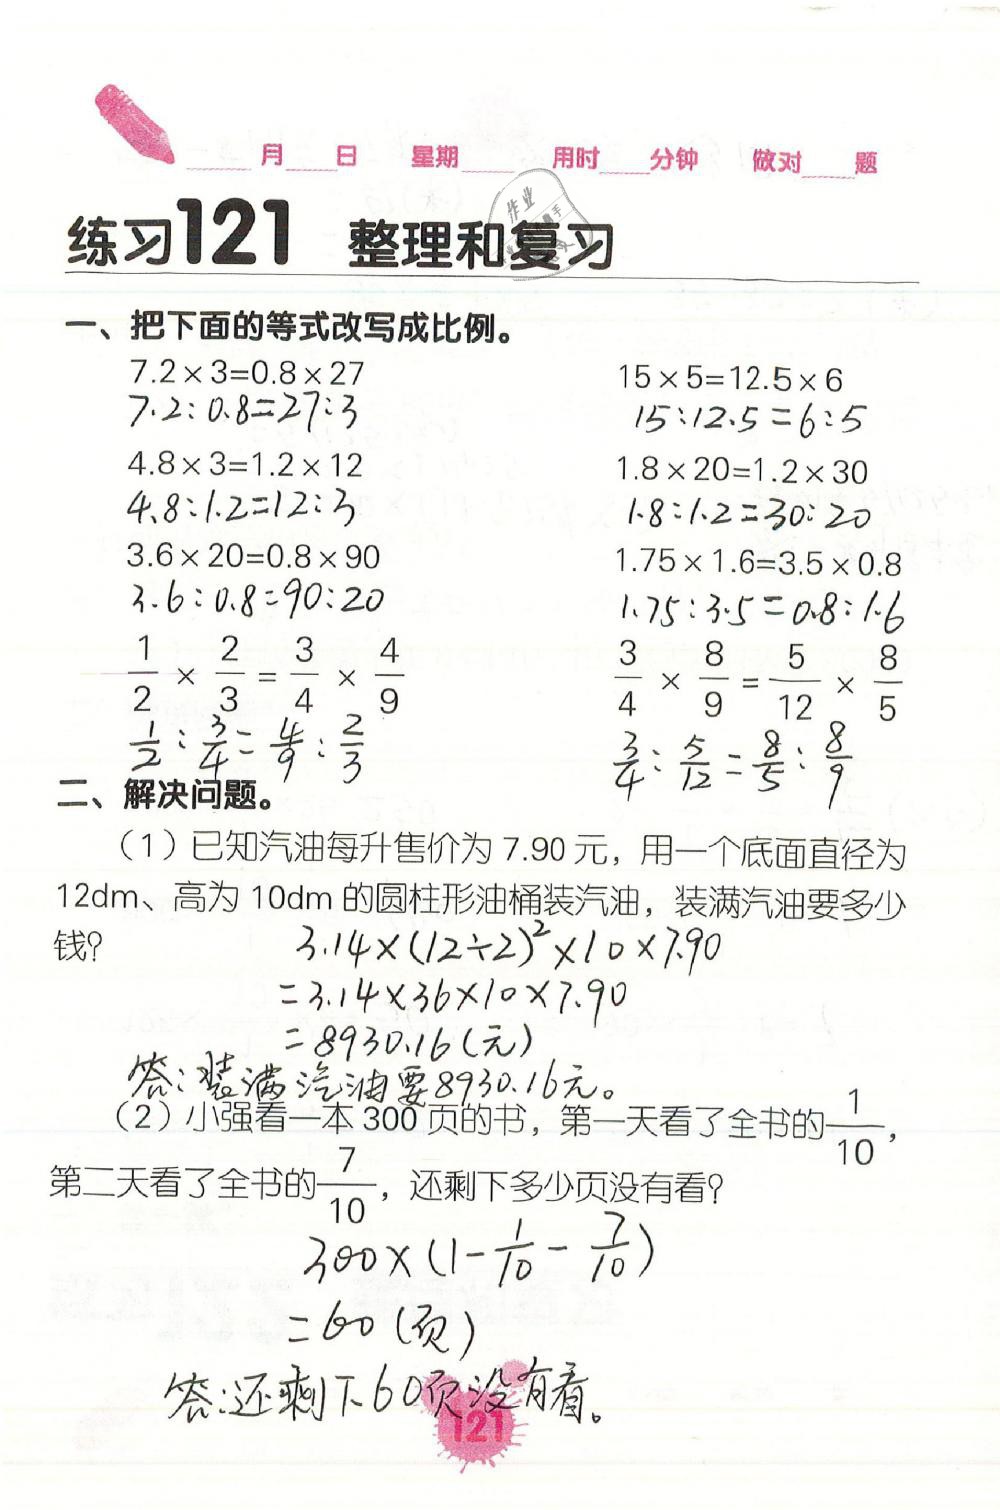 月 日 星期 用时 分钟 做对 题
作业
练习121 整理和复习
一、把下面的等式改写成比例。
7.2×3=0.8×27 15×5=12.5×6
7.2:0.8=27:3 15:12.5=6:5
4.8×3=1.2×12 1.8×20=1.2×30
4.8:1.2=12:3 1.8:1.2=30:20
3.6×20=0.8×90 1.75×1.6=3.5×0.8
3.6:0.8=90:20 1.75:3.5=0.8:1.6
1/2 × 2/3 = 3/4 × 4/9 3/4 × 8/9 = 5/12 × 8/5
1/2 : 3/4 = 4/9 : 2/3 3/4 : 5/12 = 8/5 : 8/9
二、解决问题。
（1）已知汽油每升售价为 7.90 元，用一个底面直径为
12dm、高为 10dm 的圆柱形油桶装汽油，装满汽油要多少
钱?
3.14×(12÷2)²×10×7.90
=3.14×36×10×7.90
=8930.16(元)
答:装满汽油要8930.16元。
（2）小强看一本 300 页的书，第一天看了全书的1/10，
第二天看了全书的7/10，还剩下多少页没有看?
300×(1-1/10-7/10)
=60(页)
答:还剩下60页没有看。
121